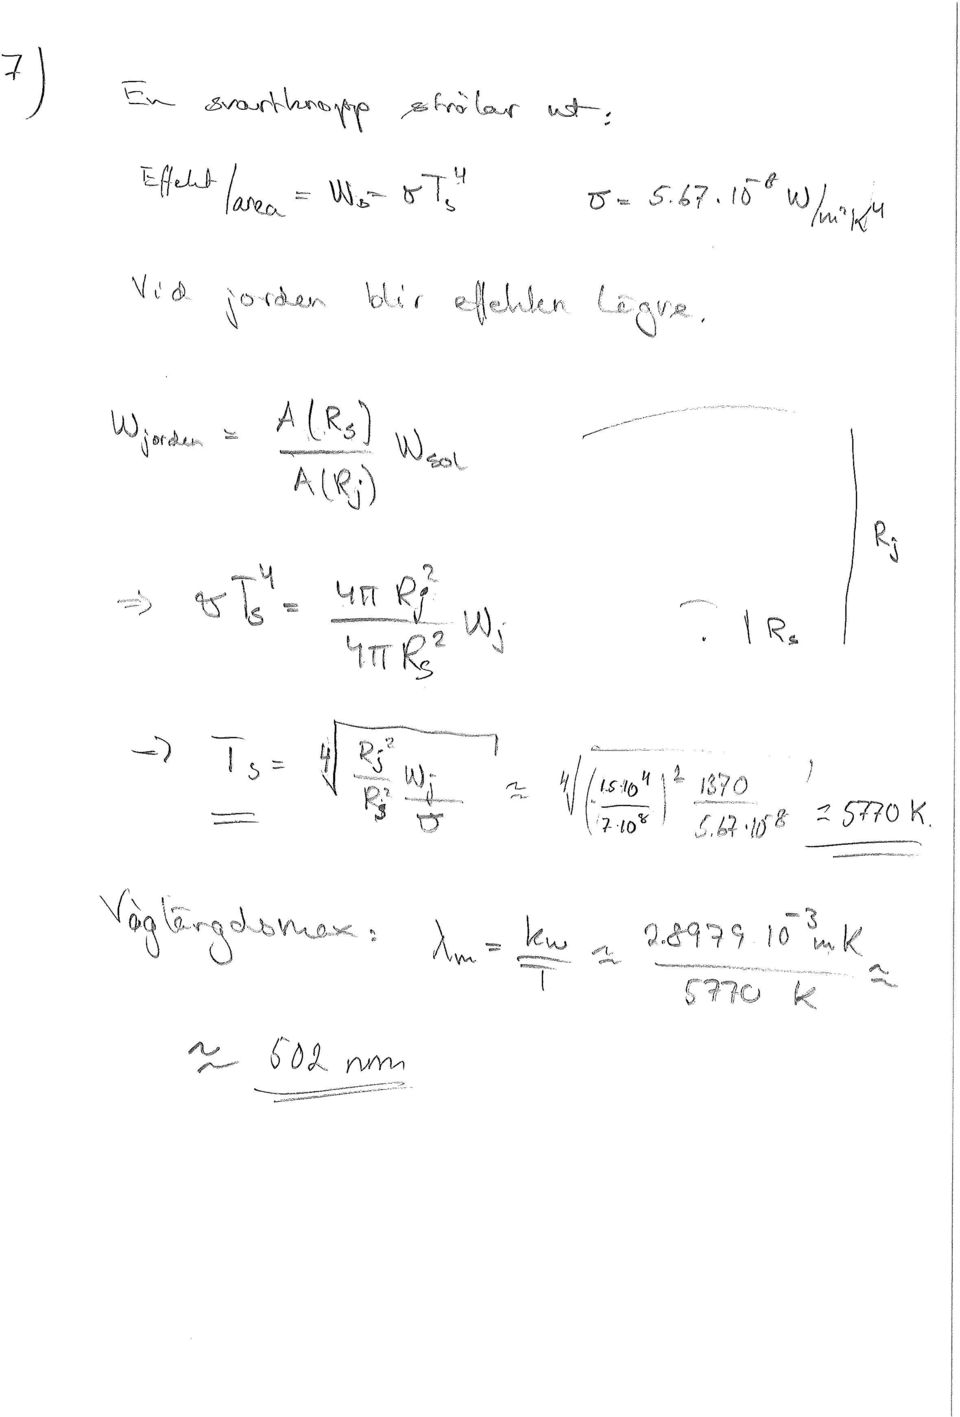 7)
En svartkropp strålar ut:
Effekt/area = Ws = σTs⁴   σ = 5.67·10⁻⁸ W/m²K⁴
Vid jorden blir effekten lägre.
Wjorden = A(Rs)/A(Rj) Wsol
Rj
⇒ σTs⁴ = 4π Rj²/4π Rs² Wj
Rs
→ Ts = ⁴√(Rj²/Rs² Wj/σ) ≈ ⁴√((1.5·10⁴/7·10⁸)² 1370/5.67·10⁻⁸) ≈ 5770 K.
Våglängdsmax: λm = kw/T ≈ 2.8979 10⁻³ mK/5770 K ≈
≈ 502 nm